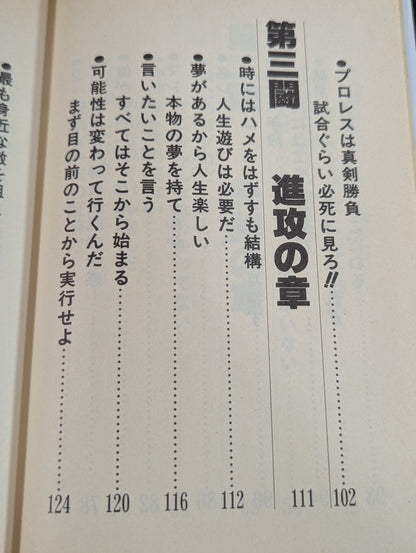 ●プロレスは真剣勝負
試合ぐらい必死に見ろ!!……102
第三闘 進攻の章 111
●時にはハメをはずすも結構
人生遊びは必要だ……112
●夢があるから人生楽しい
本物の夢を持て……116
●言いたいことを言う
すべてはそこから始まる……120
●可能性は変わって行くんだ
まず目の前のことから実行せよ……124
●最も身近な敵を